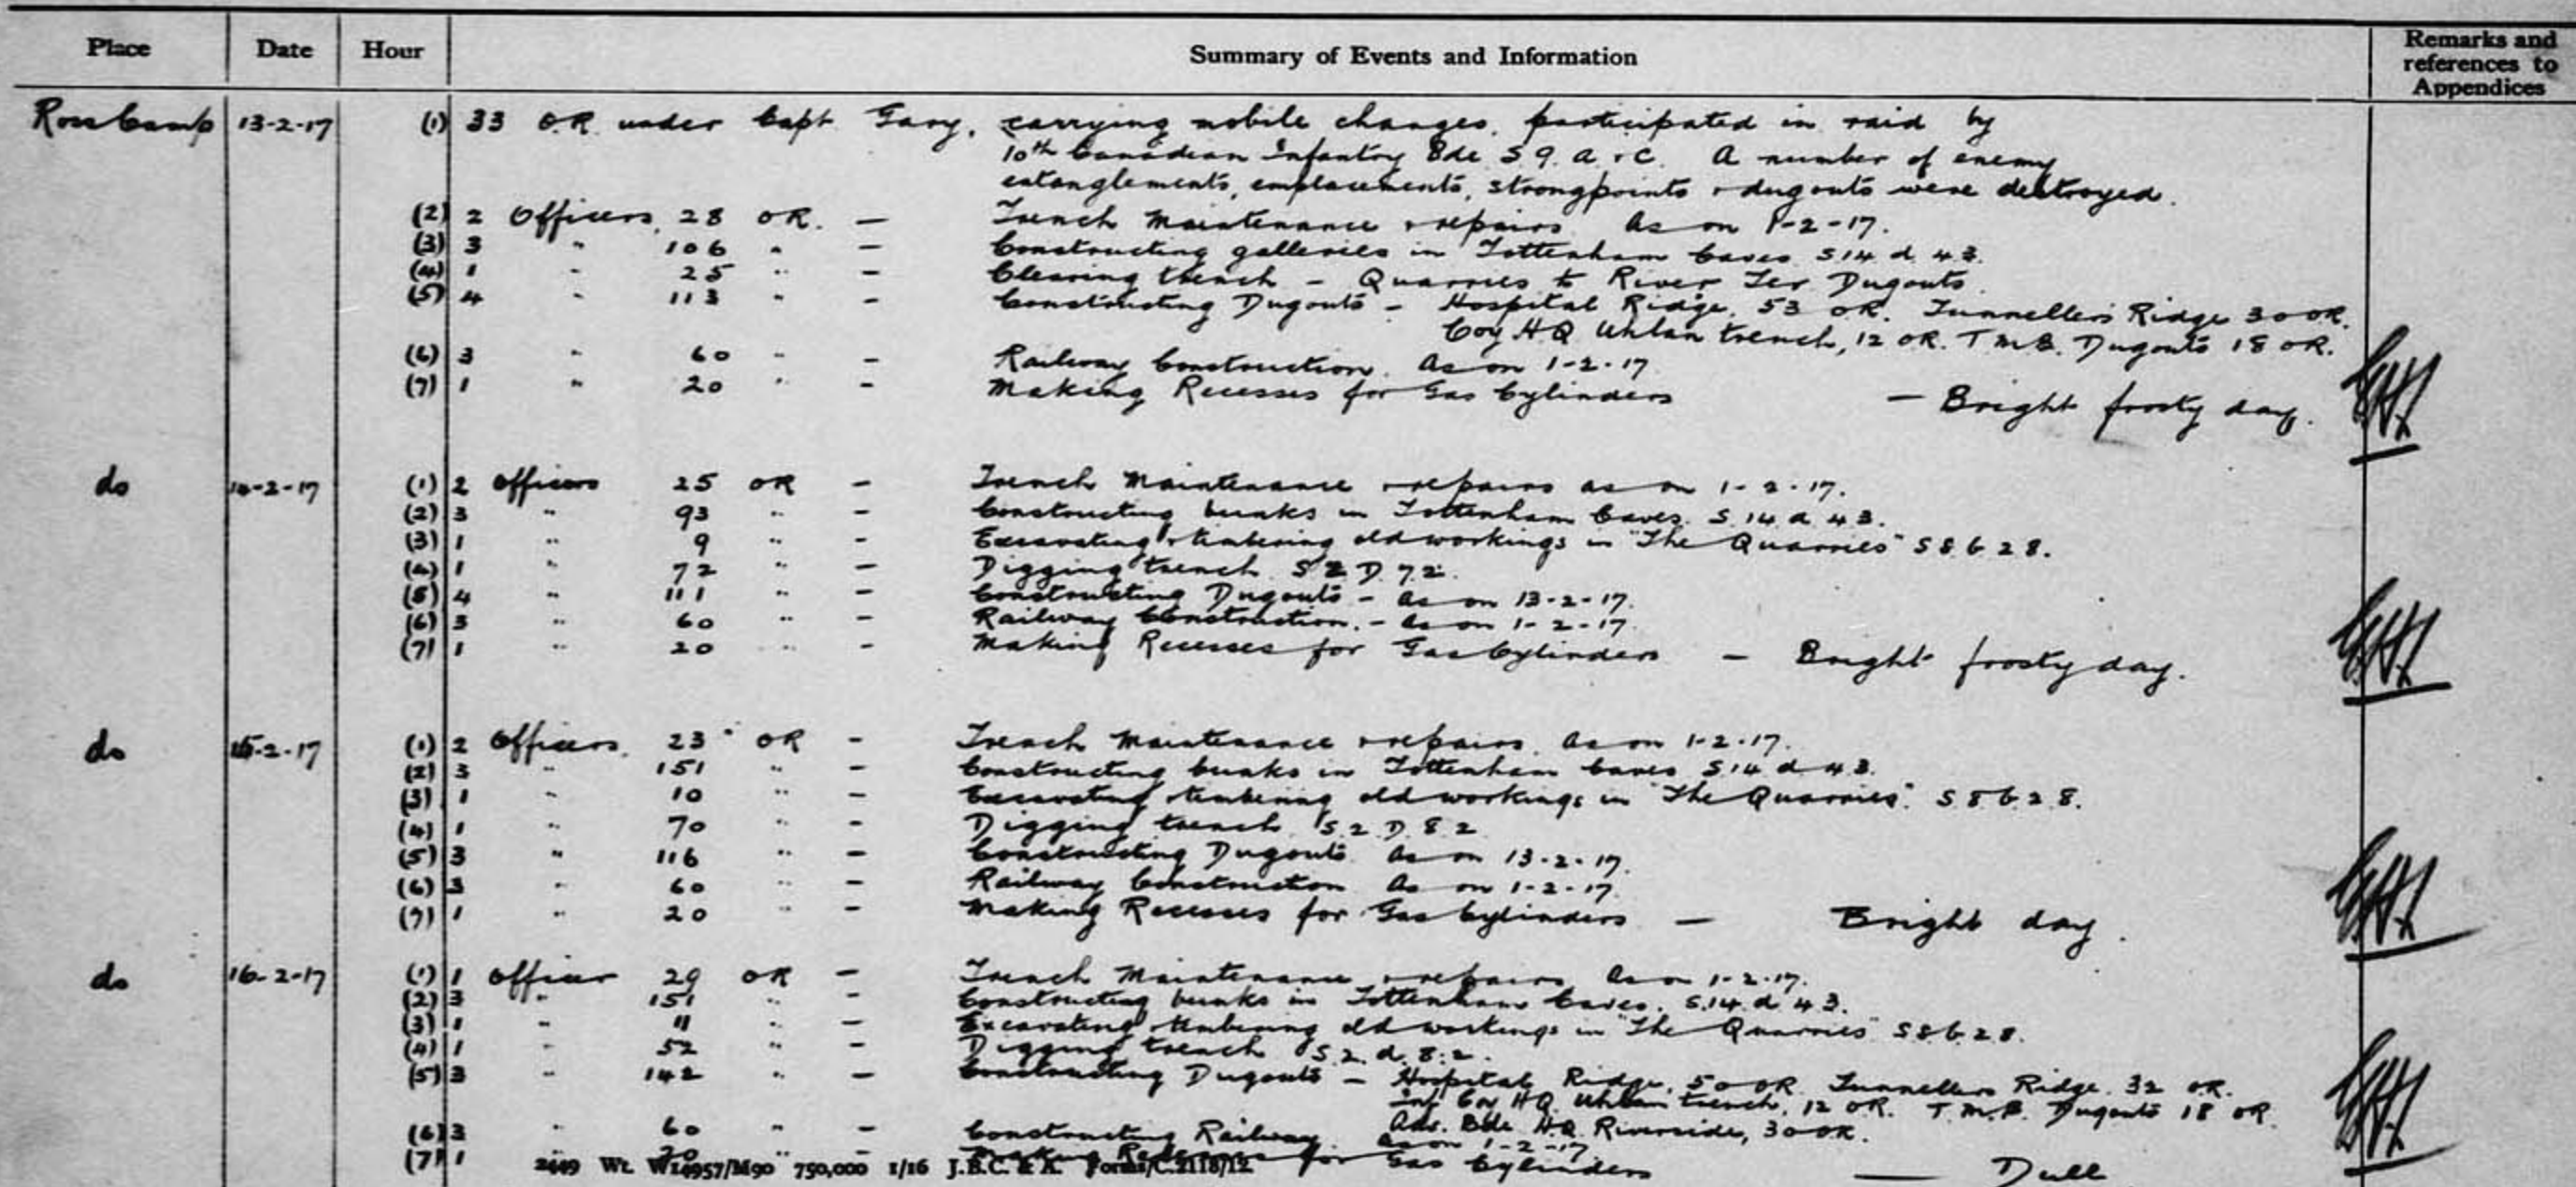 Place Date Hour Summary of Events and Information Remarks and references to Appendices
Ross Camp 13-2-17 (1) 33 O.R. under Capt Gary, carrying mobile charges, participated in raid by
10th Canadian Infantry Bde S 9. a + c. A number of enemy
entanglements, emplacements, strongpoints + dugouts were destroyed.
(2) 2 Officers, 28 OR. — Trench Maintenance + repairs. As on 1-2-17.
(3) 3 " 106 " — Constructing galleries in Tottenham Caves S 14 d 4 3.
(4) 1 " 25 " — Clearing trench - Quarries to River Ter Dugouts.
(5) 4 " 113 " — Constructing Dugouts - Hospital Ridge, 53 OR. Tunnellers Ridge 30 OR.
Coy HQ Uhlan trench, 12 OR. T.M.B. Dugouts 18 OR.
(6) 3 " 60 " — Railway Construction. As on 1-2-17
(7) 1 " 20 " — Making Recesses for Gas Cylinders — Bright frosty day.
do 14-2-17 (1) 2 Officers 25 OR — Trench Maintenance + repairs as on 1-2-17.
(2) 3 " 93 " — Constructing bunks in Tottenham Caves. S.14 d 4 3.
(3) 1 " 9 " — Excavating + timbering old workings in "The Quarries" S 8. b 2 8.
(4) 1 " 72 " — Digging trench. S 2 D. 7 2.
(5) 4 " 111 " — Constructing Dugouts - as on 13-2-17.
(6) 3 " 60 " — Railway Construction. - As on 1-2-17.
(7) 1 " 20 " — Making Recesses for Gas Cylinders — Bright frosty day.
do 15-2-17 (1) 2 Officers. 23 OR — Trench Maintenance + repairs. As on 1-2-17.
(2) 3 " 151 " — Constructing bunks in Tottenham Caves S.14 d 4 3.
(3) 1 " 10 " — Excavating + timbering old workings in "The Quarries". S 8 b 2 8.
(4) 1 " 70 " — Digging trench. S.2 D. 8 2
(5) 3 " 116 " — Constructing Dugouts. As on 13-2-17.
(6) 3 " 60 " — Railway Construction As on 1-2-17.
(7) 1 " 20 " — Making Recesses for Gas Cylinders — Bright day.
do 16-2-17 (1) 1 Officer 29 OR — Trench Maintenance + repairs. As on 1-2-17.
(2) 3 " 151 " — Constructing bunks in Tottenham Caves. S.14. d 4 3.
(3) 1 " 11 " — Excavating + timbering old workings in "The Quarries" S 8 b. 2 8.
(4) 1 " 52 " — Digging trench S.2. d. 8.2.
(5) 3 " 142 " — Constructing Dugouts — Hospital Ridge, 50 OR Tunnellers Ridge. 32 OR.
Inf Coy HQ. Uhlan trench, 12 OR. T.M.B. Dugouts 18 OR.
Adv. Bde H.Q. Riverside, 30 OR.
(6) 3 " 60 " — Constructing Railway. As on 1-2-17.
(7) 1 " 20 " — Making Recesses for Gas Cylinders — Dull
2449 Wt. W14957/M90 750,000 1/16 J.B.C. & A. Forms/C.2118/12